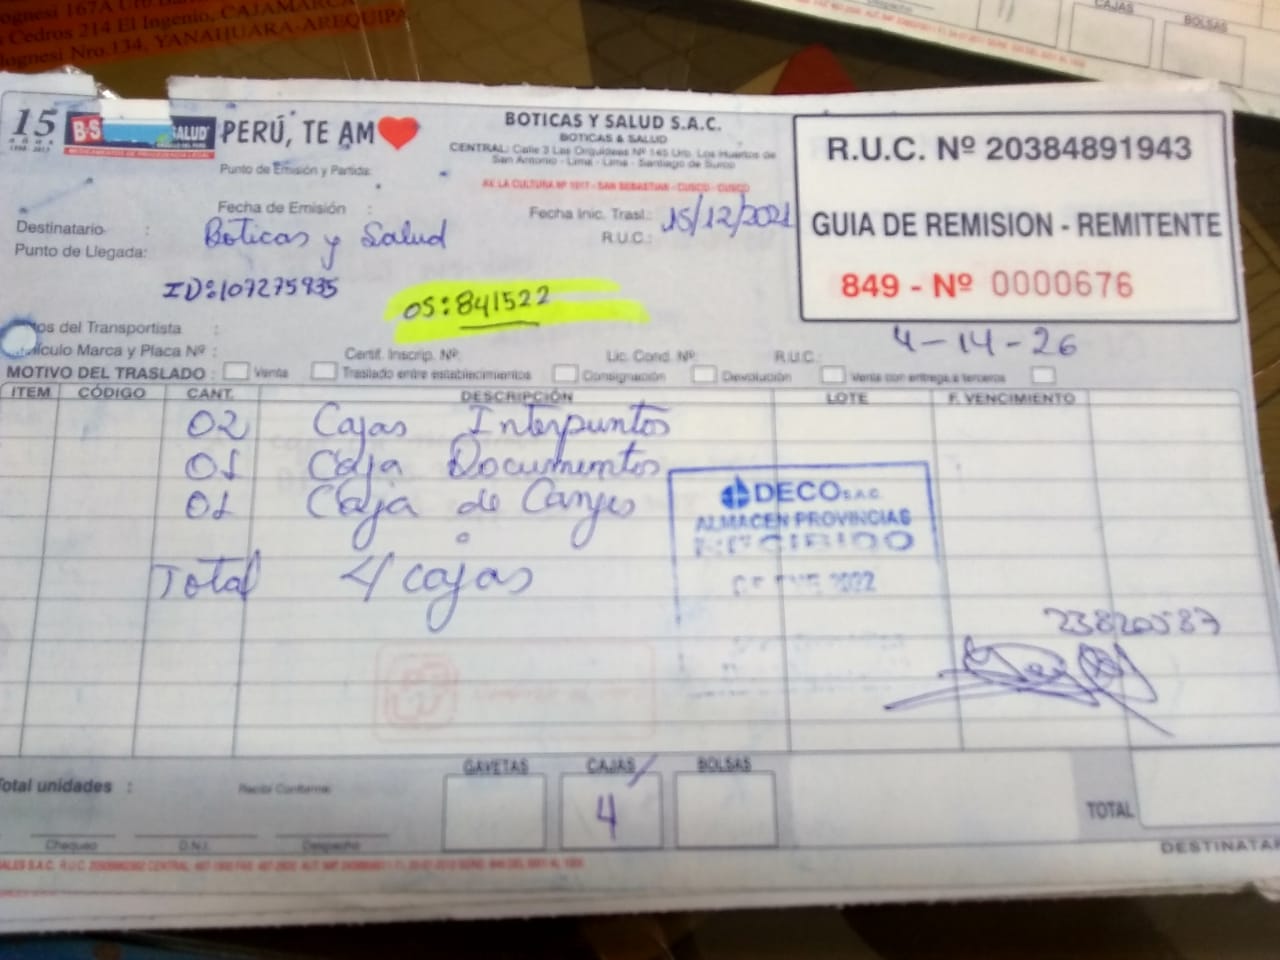 ognesi 167A Urb.
s Cedros 214 El Ingenio, CAJAMARCA
lognesi Nro.134, YANAHUARA-AREQUIPA
CAJAS
BOLSAS
15
B·S SALUD
PERÚ, TE AM
Punto de Emisión y Partida:
BOTICAS Y SALUD S.A.C.
BOTICAS & SALUD
CENTRAL: Calle 3 Las Orquídeas Nº 145 Urb. Los Huertos de
San Antonio - Lima - Lima - Santiago de Surco
AV. LA CULTURA Nº 1917 - SAN SEBASTIAN - CUSCO - CUSCO
R.U.C. Nº 20384891943
GUIA DE REMISION - REMITENTE
849 - Nº 0000676
Fecha de Emisión :
Fecha Inic. Trasl.: 15/12/2021
Destinatario : Boticas y Salud
R.U.C.:
Punto de Llegada:
ID:107275935
OS:841522
tos del Transportista :
4-14-26
ículo Marca y Placa Nº :
Certif. Inscrip. Nº:
Lic. Cond. Nº:
R.U.C.:
MOTIVO DEL TRASLADO : Venta Traslado entre establecimientos Consignación Devolución Venta con entrega a terceros
ITEM CÓDIGO CANT. DESCRIPCIÓN LOTE F. VENCIMIENTO
02 Cajas Interpuntos
01 Caja Documentos
01 Caja de Canjes
Total 4 cajas
DECO S.A.C.
ALMACEN PROVINCIAS
RECIBIDO
2022
23820587
Total unidades :
Recibí Conforme:
GAVETAS CAJAS BOLSAS
4
TOTAL
Chequeo D.N.I. Despacho
DESTINATAR